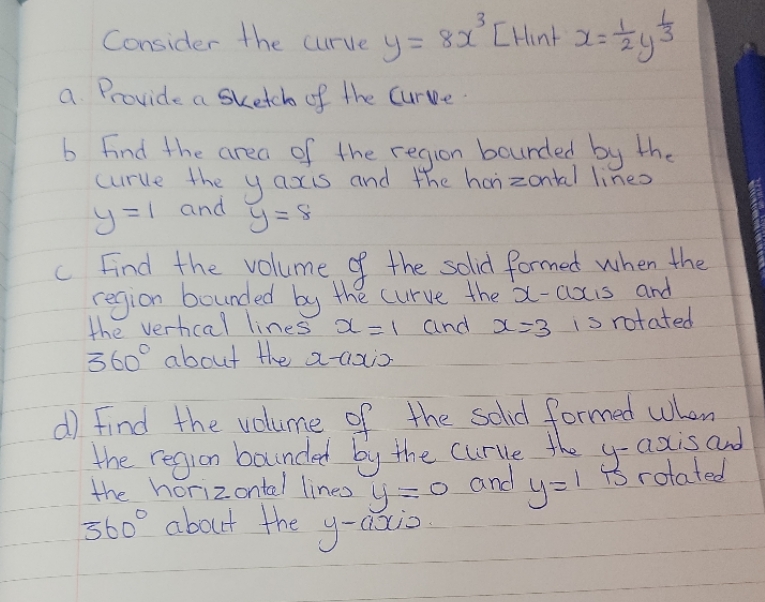 Consider the curve y = 8x³ [Hint x = ½y^⅓
a. Provide a sketch of the curve.
b Find the area of the region bounded by the
curve the y axis and the horizontal lines
y = 1 and y = 8
c Find the volume of the solid formed when the
region bounded by the curve the x-axis and
the vertical lines x = 1 and x = 3 is rotated
360° about the x-axis
d) Find the volume of the solid formed when
the region bounded by the curve the y-axis and
the horizontal lines y = 0 and y = 1 is rotated
360° about the y-axis.